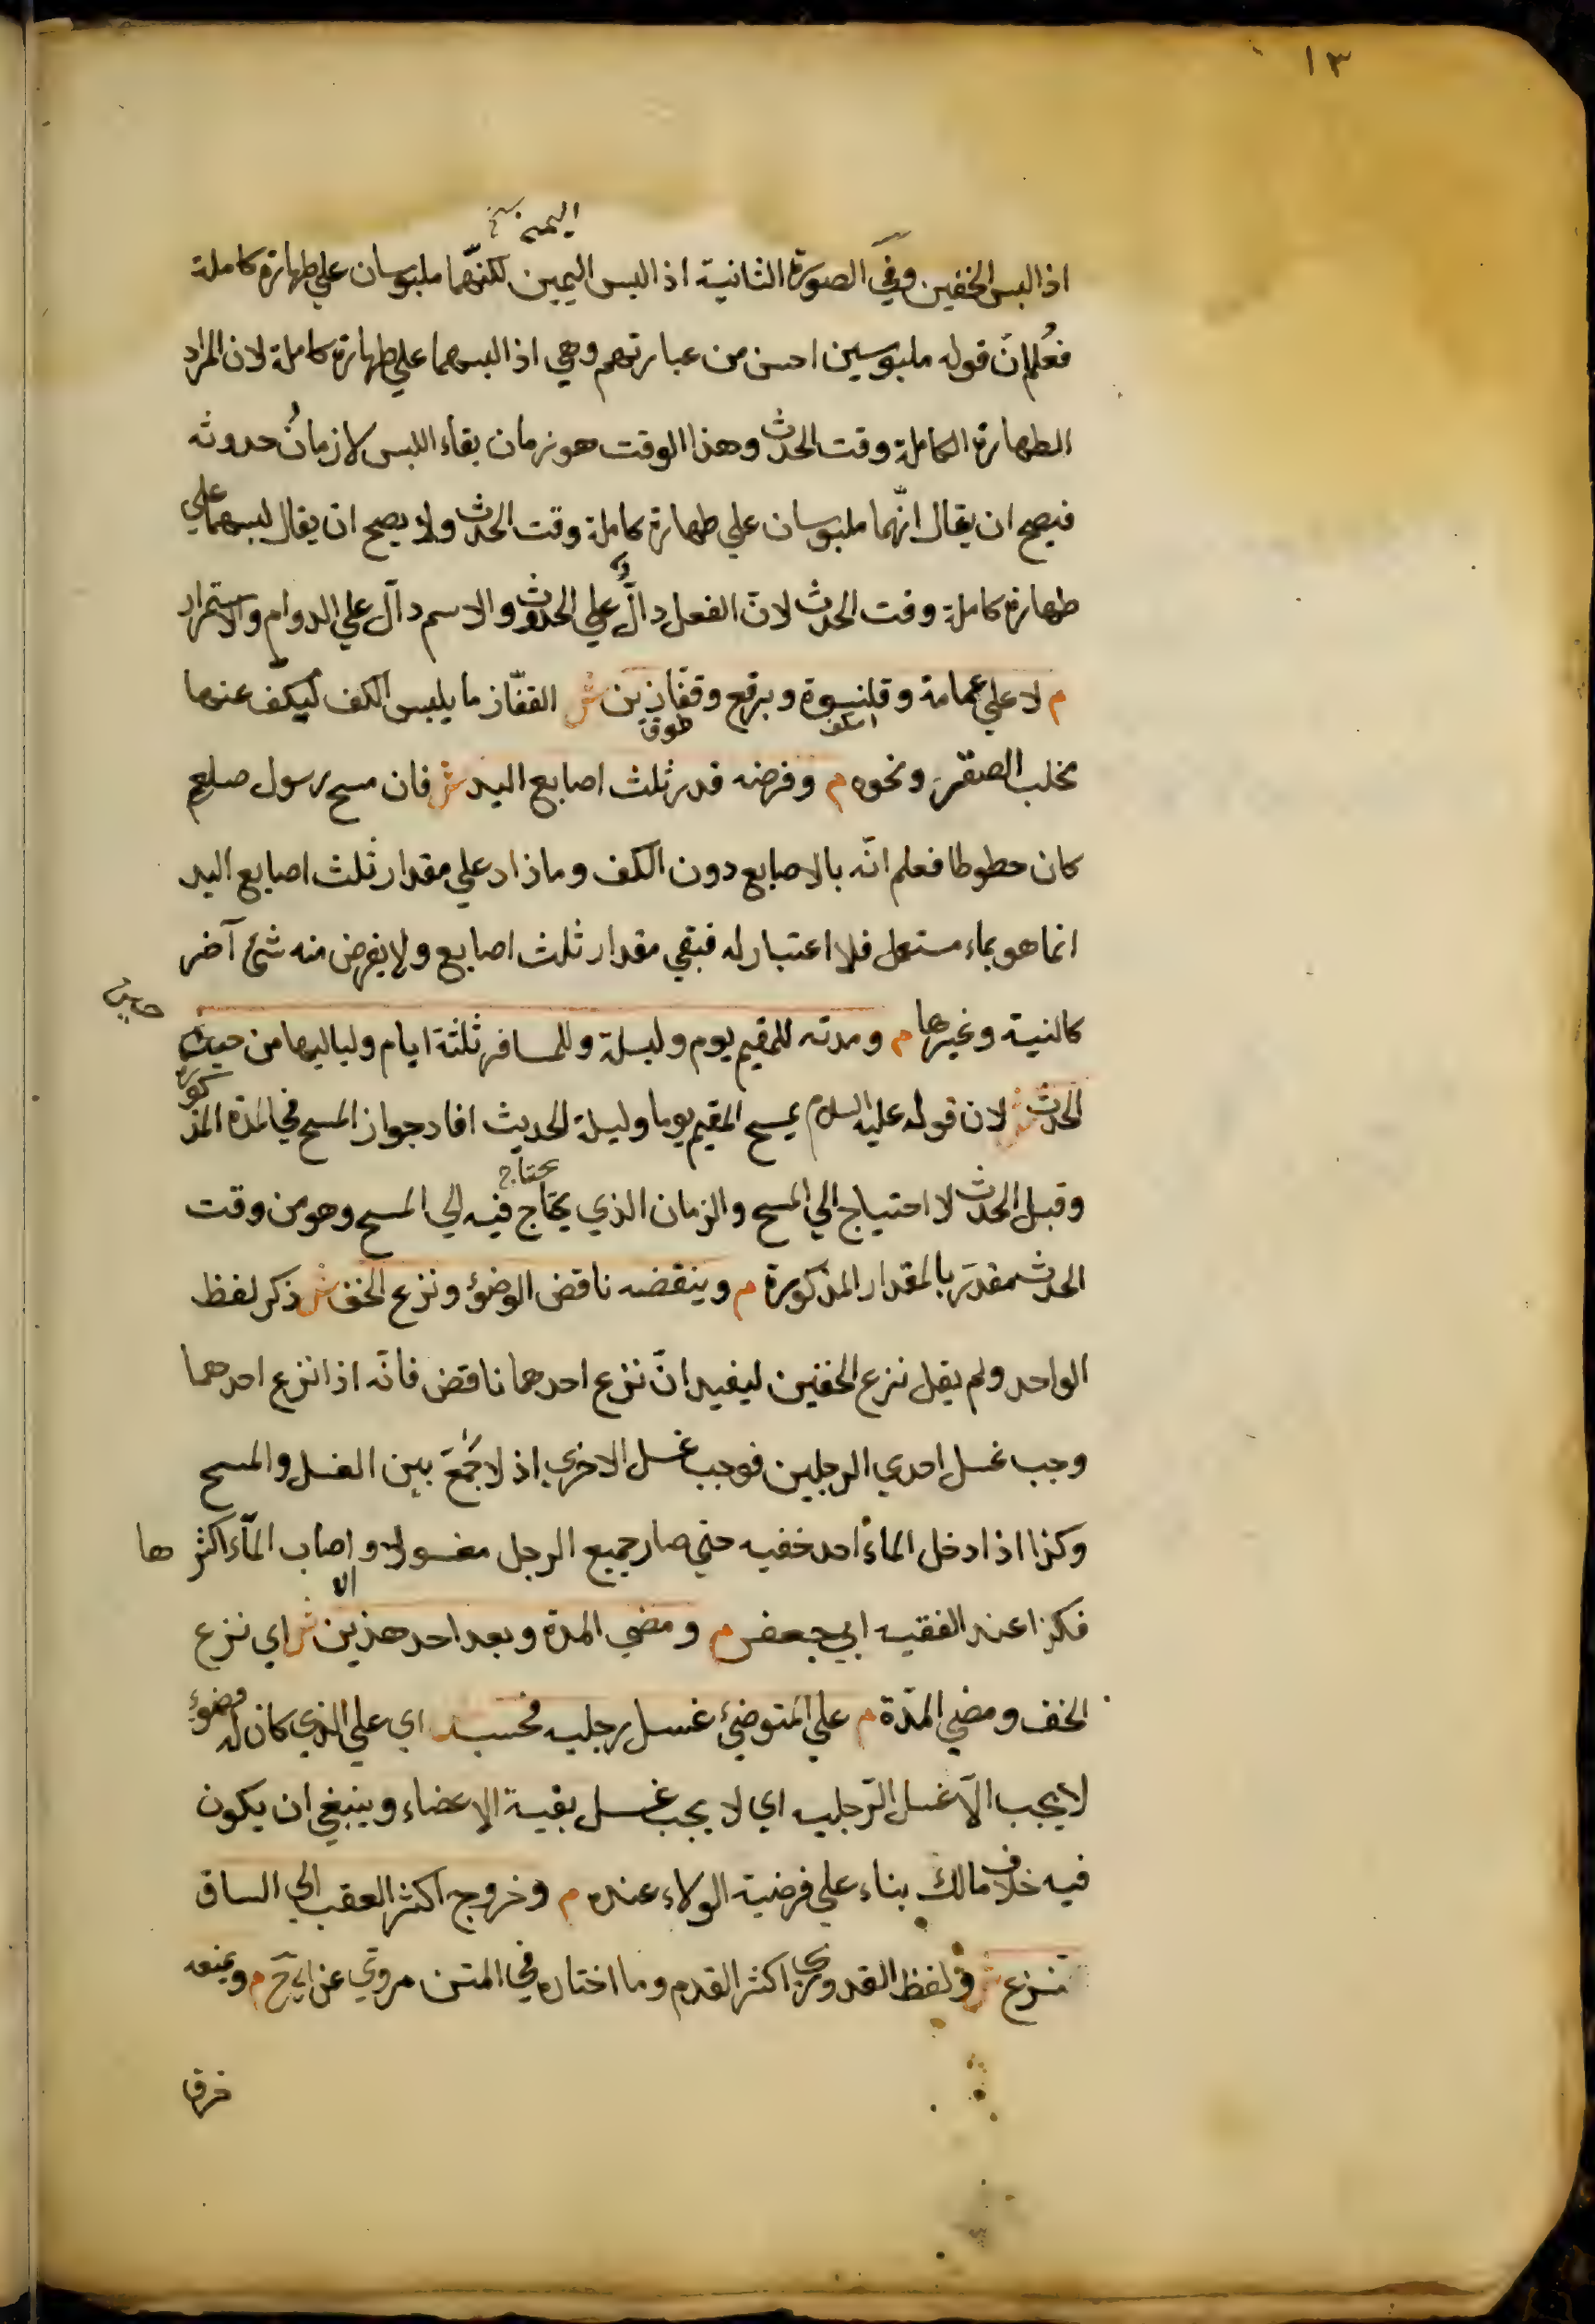 ١٣
اليمنى نسخ
اذا لبس الخفين وفي الصورة الثانية اذا لبس اليمين لكنهّما ملبوسان علي طهارة كاملة
فعُلم انّ قوله ملبوسين احسن من عبارتهم وهي اذا لبسهما علي طهارة كاملة لان المراد
الطهارة الكاملة وقت الحدث وهذا الوقت هو زمان بقاء اللبس لا زمانُ حدوثه
فيصح ان يقال انّهما ملبوسان علي طهارة كاملة وقت الحدث ولا يصح ان يقال لبسهما علي
طهارة كاملة وقت الحدث لانّ الفعل دالٌّ علي الحدوث والاسم دالّ علي الدوام والاستمرار
م لا علي عمامة وقلنسوة وبرقع وقفّازين ش القفّاز ما يلبس الكف ليكف عنها
مخلب الصقر ونحوه م وفرضه قدر ثلث اصابع اليد ش فان مسح رسول صلعم
كان خطوطا فعلم انّه بالاصابع دون الكف وما زاد علي مقدار ثلث اصابع اليد
انما هو بماء مستعمل فلا اعتبار له فبقي مقدار ثلث اصابع ولا يفرض منه شئ آخر
كالنية وغيرها م ومدته للمقيم يوم وليلة وللمسافر ثلثة ايام ولياليها من حيث
حين
الحدث ش لان قوله عليه السلام يمسح المقيم يوما وليلة الحديث افاد جواز المسح في المدة المذكورة
وقبل الحدث لا احتياج الي المسح والزمان الذي يحتاج فيه الي المسح وهو من وقت
يحتاج
الحدث مقدّر بالمقدار المذكورة م وينقضه ناقض الوضوٴ ونزع الخف ش ذكر لفظ
الواحد ولم يقل نزع الخفين ليفيد انّ نزع احدهما ناقض فانّه اذا نزع احدهما
وجب غسل احدي الرجلين فوجب غسل الاخري اذ لا جَمْعَ بين الغسل والمسح
وكذا اذا دخل الماءُ احد خفيه حتي صار جميع الرجل مغسولا واصاب الماء اكثرها
فكذا عند الفقيه ابي جعفر م ومضي المدة وبعد احد هذين ش اي نزع
الخف ومضي المدّة م علي المتوضئ غسل رجليه فحسب اي علي الذي كان له وضوء
لا يجب الّا غسل الرّجليه اي لا يجب غسل بقية الاعضاء وينبغي ان يكون
فيه خلاف مالك بناء علي فرضية الولاء عنده م وخروج اكثر العقب الي الساق
نزع ش ولفظ القدوري اكثر القدم وما اختاره في المتن مرويّ عن ابي ح م ويمنعه
خرق